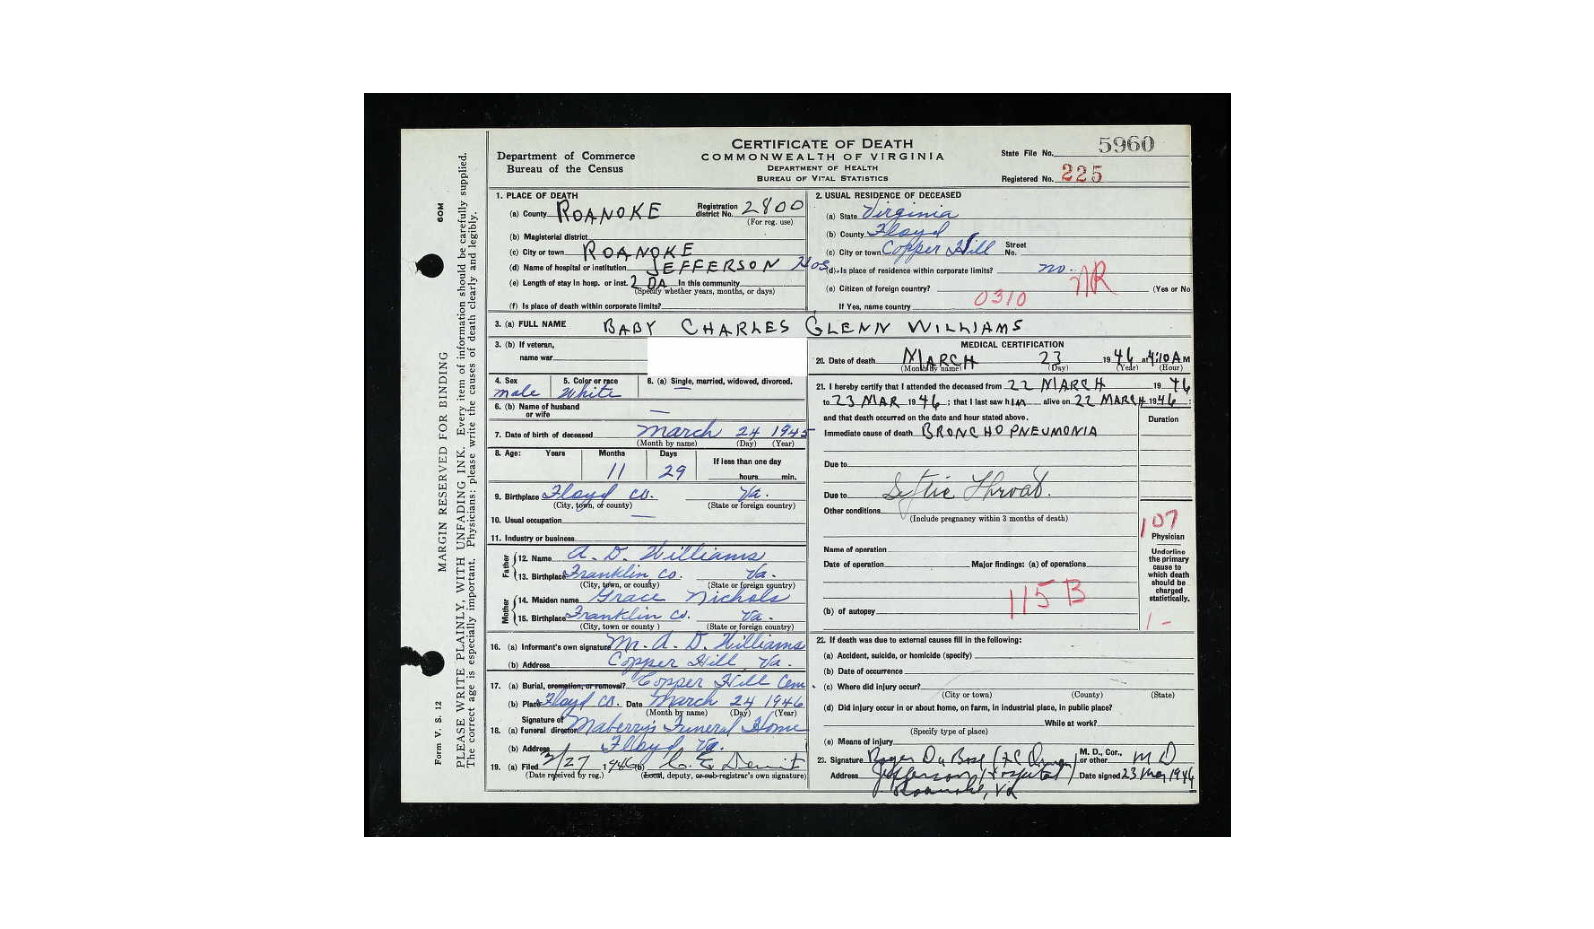 60M
MARGIN RESERVED FOR BINDING
PLEASE WRITE PLAINLY, WITH UNFADING INK. Every item of information should be carefully supplied.
The correct age is especially important. Physicians: please write the causes of death clearly and legibly.
Form V. S. 12
Department of Commerce
Bureau of the Census
CERTIFICATE OF DEATH
COMMONWEALTH OF VIRGINIA
DEPARTMENT OF HEALTH
BUREAU OF VITAL STATISTICS
State File No. 5960
Registered No. 225
1. PLACE OF DEATH
(a) County ROANOKE Registration district No. 2800
(For reg. use)
(b) Magisterial district
(c) City or town ROANOKE
(d) Name of hospital or institution JEFFERSON HOS
(e) Length of stay in hosp. or inst. 2 DA In this community
(Specify whether years, months, or days)
(f) Is place of death within corporate limits?
2. USUAL RESIDENCE OF DECEASED
(a) State Virginia
(b) County Floyd
(c) City or town Copper Hill Street No.
(d) Is place of residence within corporate limits? no. NR
(e) Citizen of foreign country? (Yes or No
0310
If Yes, name country
3. (a) FULL NAME BABY CHARLES GLENN WILLIAMS
3. (b) If veteran,
name war
4. Sex 5. Color or race 6. (a) Single, married, widowed, divorced.
male White —
6. (b) Name of husband
or wife —
7. Date of birth of deceased March 24 1945
(Month by name) (Day) (Year)
8. Age: Years Months Days If less than one day
11 29 hours min.
9. Birthplace Floyd co. Va.
(City, town, or county) (State or foreign country)
10. Usual occupation —
11. Industry or business
Father
12. Name A. D. Williams
13. Birthplace Franklin co. Va.
(City, town, or county) (State or foreign country)
Mother
14. Maiden name Grace Nichols
15. Birthplace Franklin co. Va.
(City, town or county) (State or foreign country)
16. (a) Informant's own signature M. A. D. Williams
(b) Address Copper Hill Va.
17. (a) Burial, cremation, or removal? Copper Hill Cem
(b) Place Floyd co. Date March 24 1946
(Month by name) (Day) (Year)
Signature of
18. (a) funeral director Maberry's Funeral Home
(b) Address Floyd Va.
19. (a) Filed 3/27 1946 (b)
(Date received by reg.) (Local, deputy, or sub-registrar's own signature)
MEDICAL CERTIFICATION
20. Date of death MARCH 23 1946 at 4:10 A M
(Month by name) (Day) (Year) (Hour)
21. I hereby certify that I attended the deceased from 22 MARCH 1946
to 23 MAR 1946; that I last saw him alive on 22 MARCH 1946;
and that death occurred on the date and hour stated above.
Duration
Immediate cause of death BRONCHOPNEUMONIA
Due to
Due to Septic Throat.
Other conditions
(Include pregnancy within 3 months of death)
107
Physician
Underline the primary cause to which death should be charged statistically.
Name of operation
Date of operation Major findings: (a) of operations
115 B
(b) of autopsy
1 -
22. If death was due to external causes fill in the following:
(a) Accident, suicide, or homicide (specify)
(b) Date of occurrence
(c) Where did injury occur?
(City or town) (County) (State)
(d) Did injury occur in or about home, on farm, in industrial place, in public place?
While at work?
(Specify type of place)
(e) Means of injury
23. Signature Roger DuBose M. D., Cor., or other M D
Address Jefferson Hospital Date signed 23 Mar 1946
Roanoke, Va